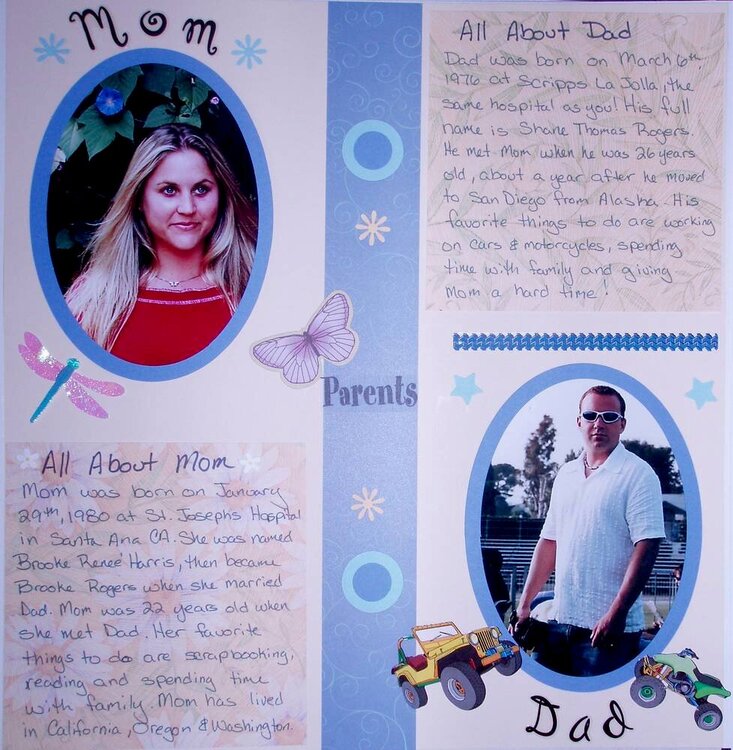 Mom
All About Dad
Dad was born on March 6th,
1976 at Scripps La Jolla, the
same hospital as you! His full
name is Shane Thomas Rogers.
He met Mom when he was 26 years
old, about a year after he moved
to San Diego from Alaska. His
favorite things to do are working
on cars & motorcycles, spending
time with family and giving
Mom a hard time!
Parents
All About Mom
Mom was born on January
29th, 1980 at St. Josephs Hospital
in Santa Ana CA. She was named
Brooke Reneé Harris, then became
Brooke Rogers when she married
Dad. Mom was 22 years old when
she met Dad. Her favorite
things to do are scrapbooking,
reading and spending time
with family. Mom has lived
in California, Oregon & Washington.
Dad